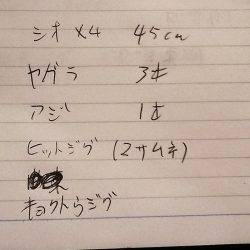 シオ×4 45cm
ヤガラ 3本
アジ 1本
ヒットジグ (マサムネ)
キョクトウジグ